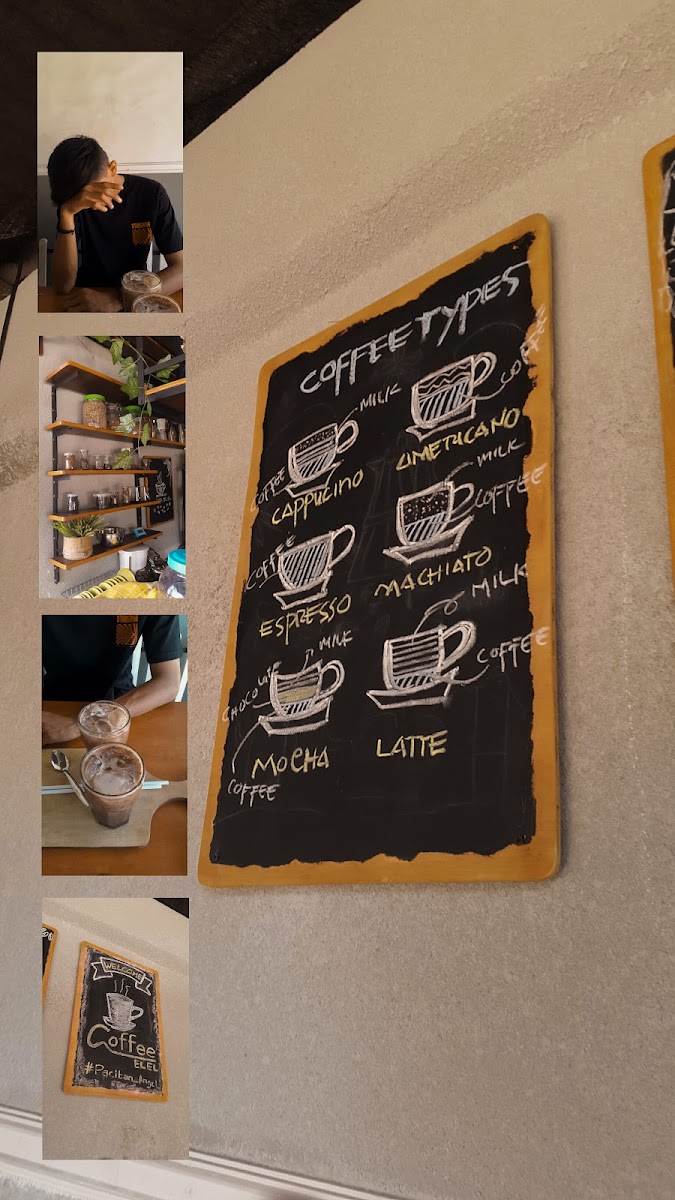 COFFEE TYPES
MILK
COFFEE
CAPPUCINO
COFFEE
AMERICANO
MILK
COFFEE
MACHIATO
COFFEE
ESPRESSO
MILK
COFFEE
LATTE
MILK
CHOCOLATE
COFFEE
MOCHA
WELCOME
Coffee
ELEL